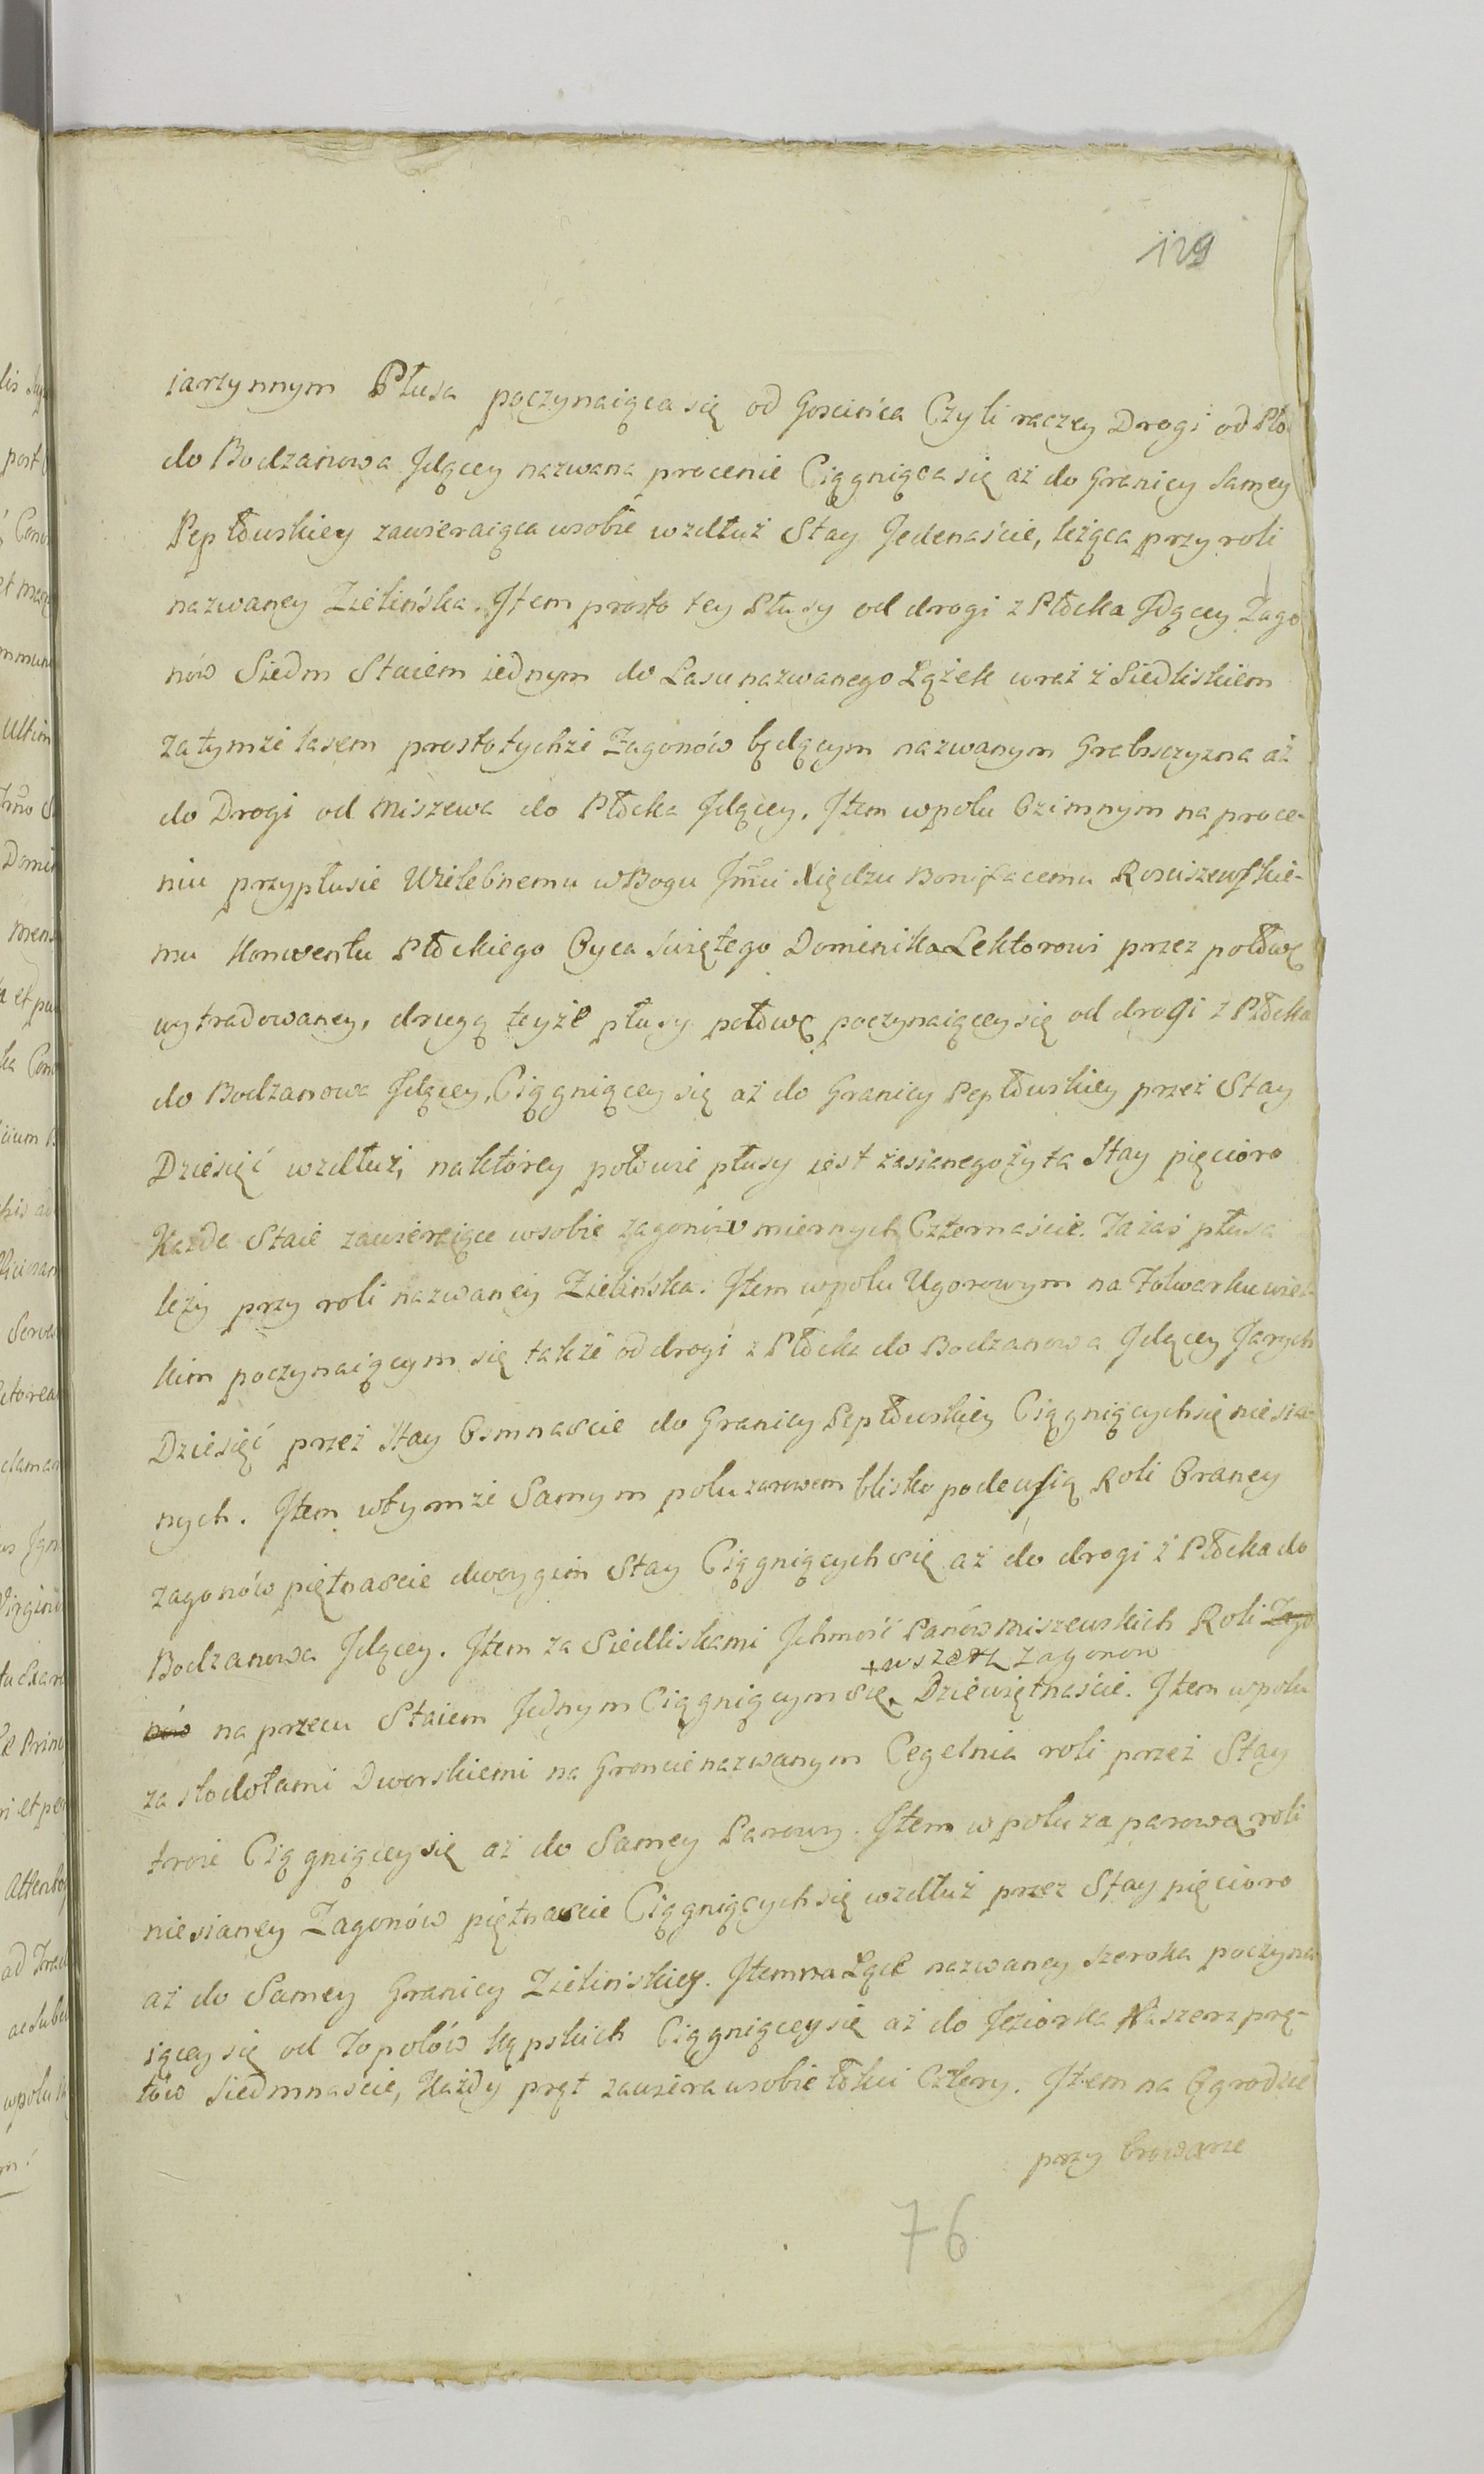 129
iarzynnym Płusa poczynaiąca się od Goscińca Czyli raczey Drogi od Płoc
do Bodzanowa Jdącey nazwana procenie Ciągniąca się aż do Granicy Samey
Pepłowskiey zawieraiąca wsobie wzdłuż Stay Jedenaście, leżąca przy roli
nazwaney Zielińska. Jtem prosto tey Płusy od drogi z Płocka Jdącey Zago
nów Siedm Staiem iednym do Lasu nazwanego Łążek wraz z Siedliskiem
zatymże lasem prosto tychże Zagonów będącym nazwanym Grabsczyzna aż
do Drogi od Miszewa do Płocka Jdącey. Jtem wpolu Ozimnym na proce-
niu przypłusie Wielebnemu wBogu Jmci Xiędzu Bonifacemu Rosciszewskie-
mu Konwentu Płockiego Oyca Swiętego Dominika Lektorowi przez połowę
wytradowaney, drugą teyże płusy połowę poczynaiącey się od drogi z Płocka
do Bodzanowa Jdącey, Ciągniącey się aż do Granicy Pepłowskiey przez Stay
Dziesięć wzdłuż, naktórey połowie płusy iest zasianego żyta Stay pięcioro
Każde Staie zawieraiące wsobie zagonów miernych Czternaście. Tażaś płusa
leży przy roli nazwaney Zielińska. Jtem wpolu Ugorowym na Folwarku wiel-
kim poczynaiącym się także od drogi z Płocka do Bodzanowa Jdącey Jarych
Dziesięć przez Stay Osmnascie do Granicy Pepłowskiey Ciągniących się niesia-
nych. Jtem wtymże Samym polu zarowem blisko podewsią Roli Oraney
zagonów piętnascie dwoygim Stay Ciągniących się aż do drogi z Płocka do
Bodzanowa Jdącey. Jtem za Siedliskami Jchmość Panów Miszewskich Roli Zago
+wszerz zagonow
nów na przeciu Staiem Jednym Ciągniącym się + Dziewiętnaście. Jtem wpolu
za stodołami Dworskiemi na Groncie nazwanym Cegelnia roli przez Stay
troie Ciągniącey się aż do Samey Parowy. Jtem w polu za parową roli
niesianey Zagonów piętnascie Ciągniących się wzdłuż przez Stay pięcioro
aż do Samey Granicy Zielińskiey. Jtem na Łące nazwaney Szeroka poczyna
iącey się od Topolów Kępskich Ciągniącey się aż do Jeziorka Naszerz prę-
tów Siedmnaście, Każdy pręt zawiera wsobie łokci Cztery. Jtem na Ogrodzie
przy browarze
76